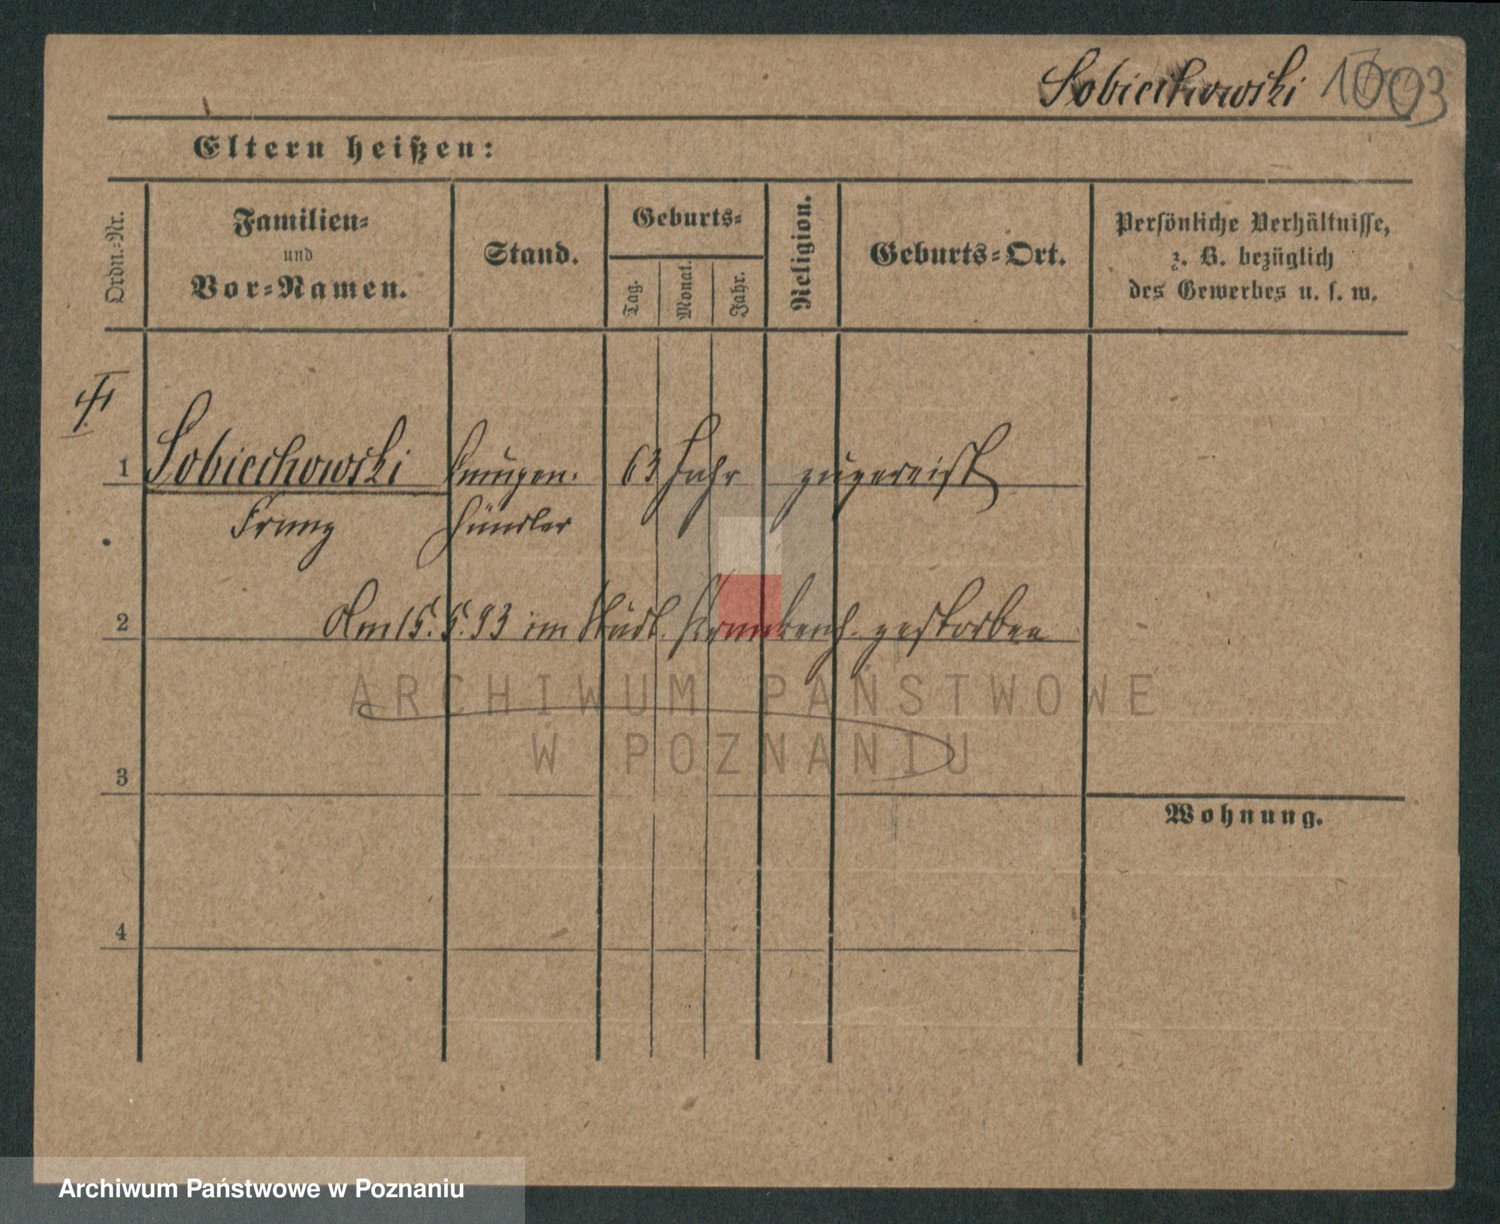 Sobiechowski 1003
Eltern heißen:
Ordn.-Nr.
Familien-
und
Vor-Namen.
Stand.
Geburts-
Tag.
Monat.
Jahr.
Religion.
Geburts-Ort.
Persönliche Verhältnisse,
z. B. bezüglich
des Gewerbes u. s. w.
1 Sobiechowski 63 Jahr zugereist
Franz händler
2 Am 15. 5. 93 im Städt. Krankenh. gestorben
ARCHIWUM PAŃSTWOWE
W POZNANIU
3
Wohnung.
4
Archiwum Państwowe w Poznaniu